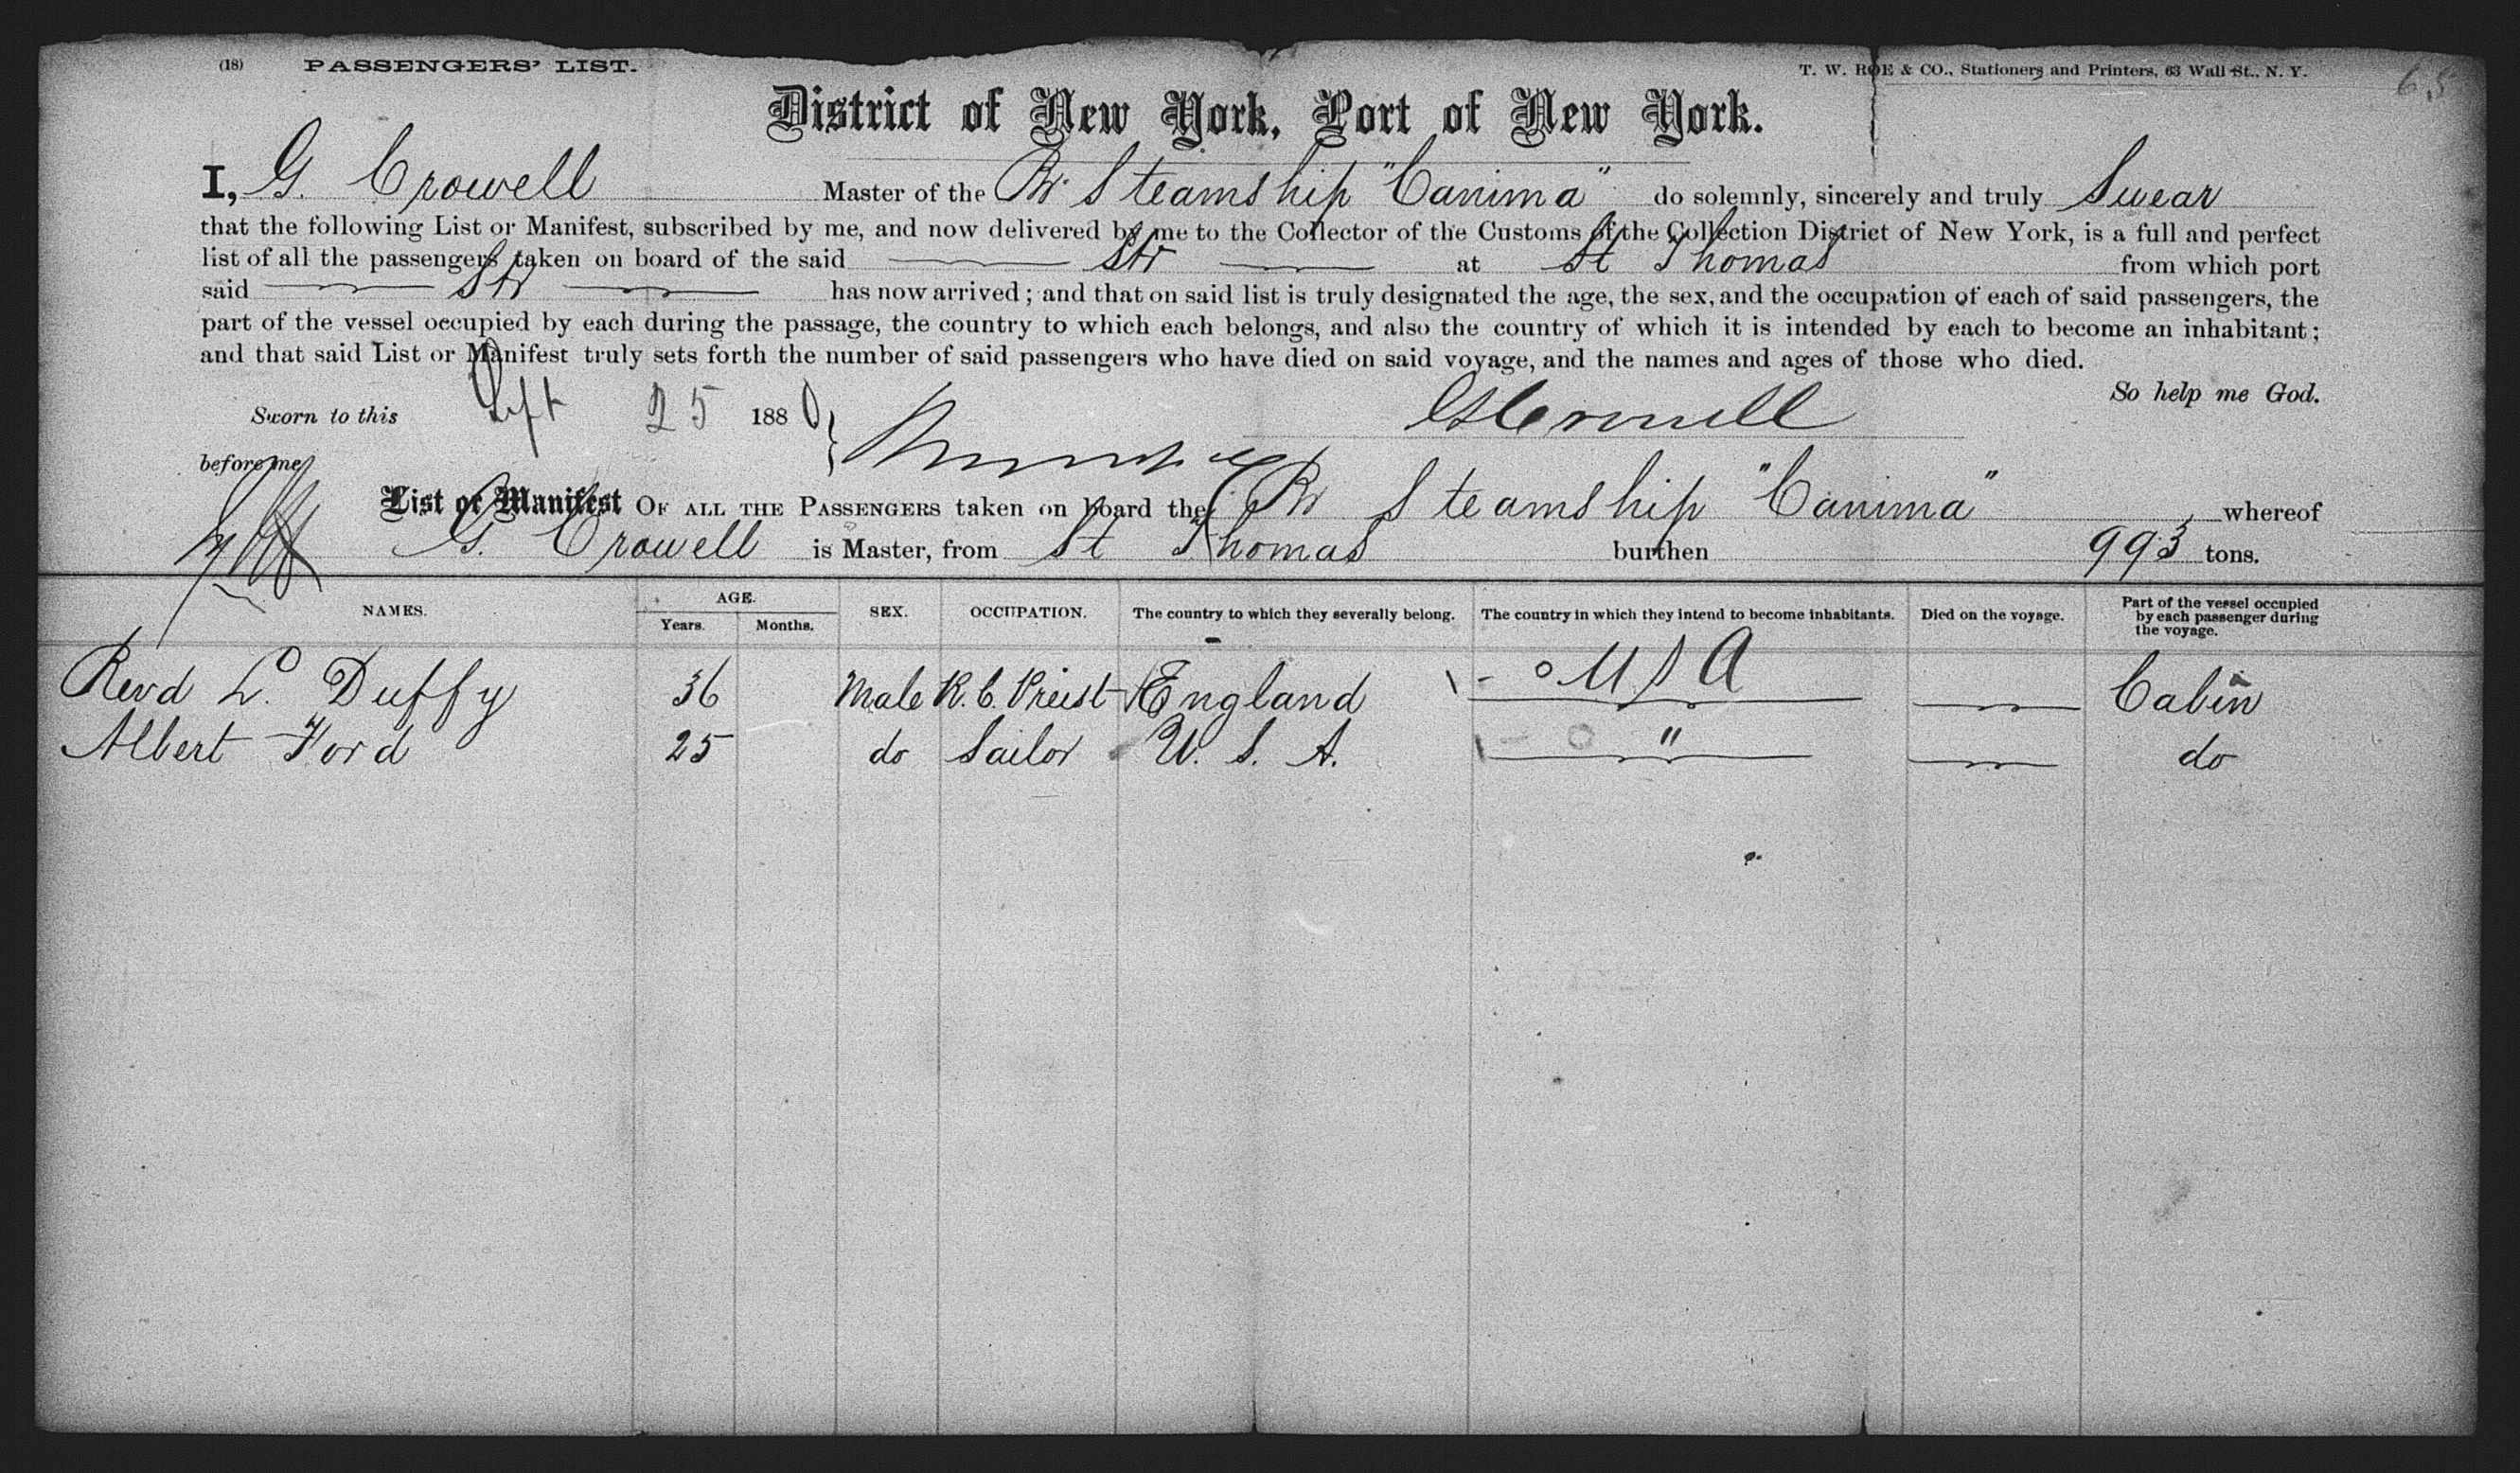 (18) PASSENGERS' LIST. T. W. ROE & CO., Stationers and Printers, 63 Wall St., N. Y. 65
District of New York, Port of New York.
I, G. Crowell Master of the Br Steamship "Canima" do solemnly, sincerely and truly Swear
that the following List or Manifest, subscribed by me, and now delivered by me to the Collector of the Customs of the Collection District of New York, is a full and perfect
list of all the passengers taken on board of the said Str at St Thomas from which port
said Str has now arrived; and that on said list is truly designated the age, the sex, and the occupation of each of said passengers, the
part of the vessel occupied by each during the passage, the country to which each belongs, and also the country of which it is intended by each to become an inhabitant;
and that said List or Manifest truly sets forth the number of said passengers who have died on said voyage, and the names and ages of those who died.
So help me God.
Sworn to this Sept 25 1880 G Crowell
before me
List or Manifest OF ALL THE PASSENGERS taken on board the Br Steamship "Canima" whereof
G. Crowell is Master, from St Thomas burthen 993 tons.
NAMES. AGE. Years. Months. SEX. OCCUPATION. The country to which they severally belong. The country in which they intend to become inhabitants. Died on the voyage. Part of the vessel occupied by each passenger during the voyage.
Revd L. Duffy 36 Male R. C. Preist England U S A Cabin
Albert Ford 25 do Sailor U. S. A. " do